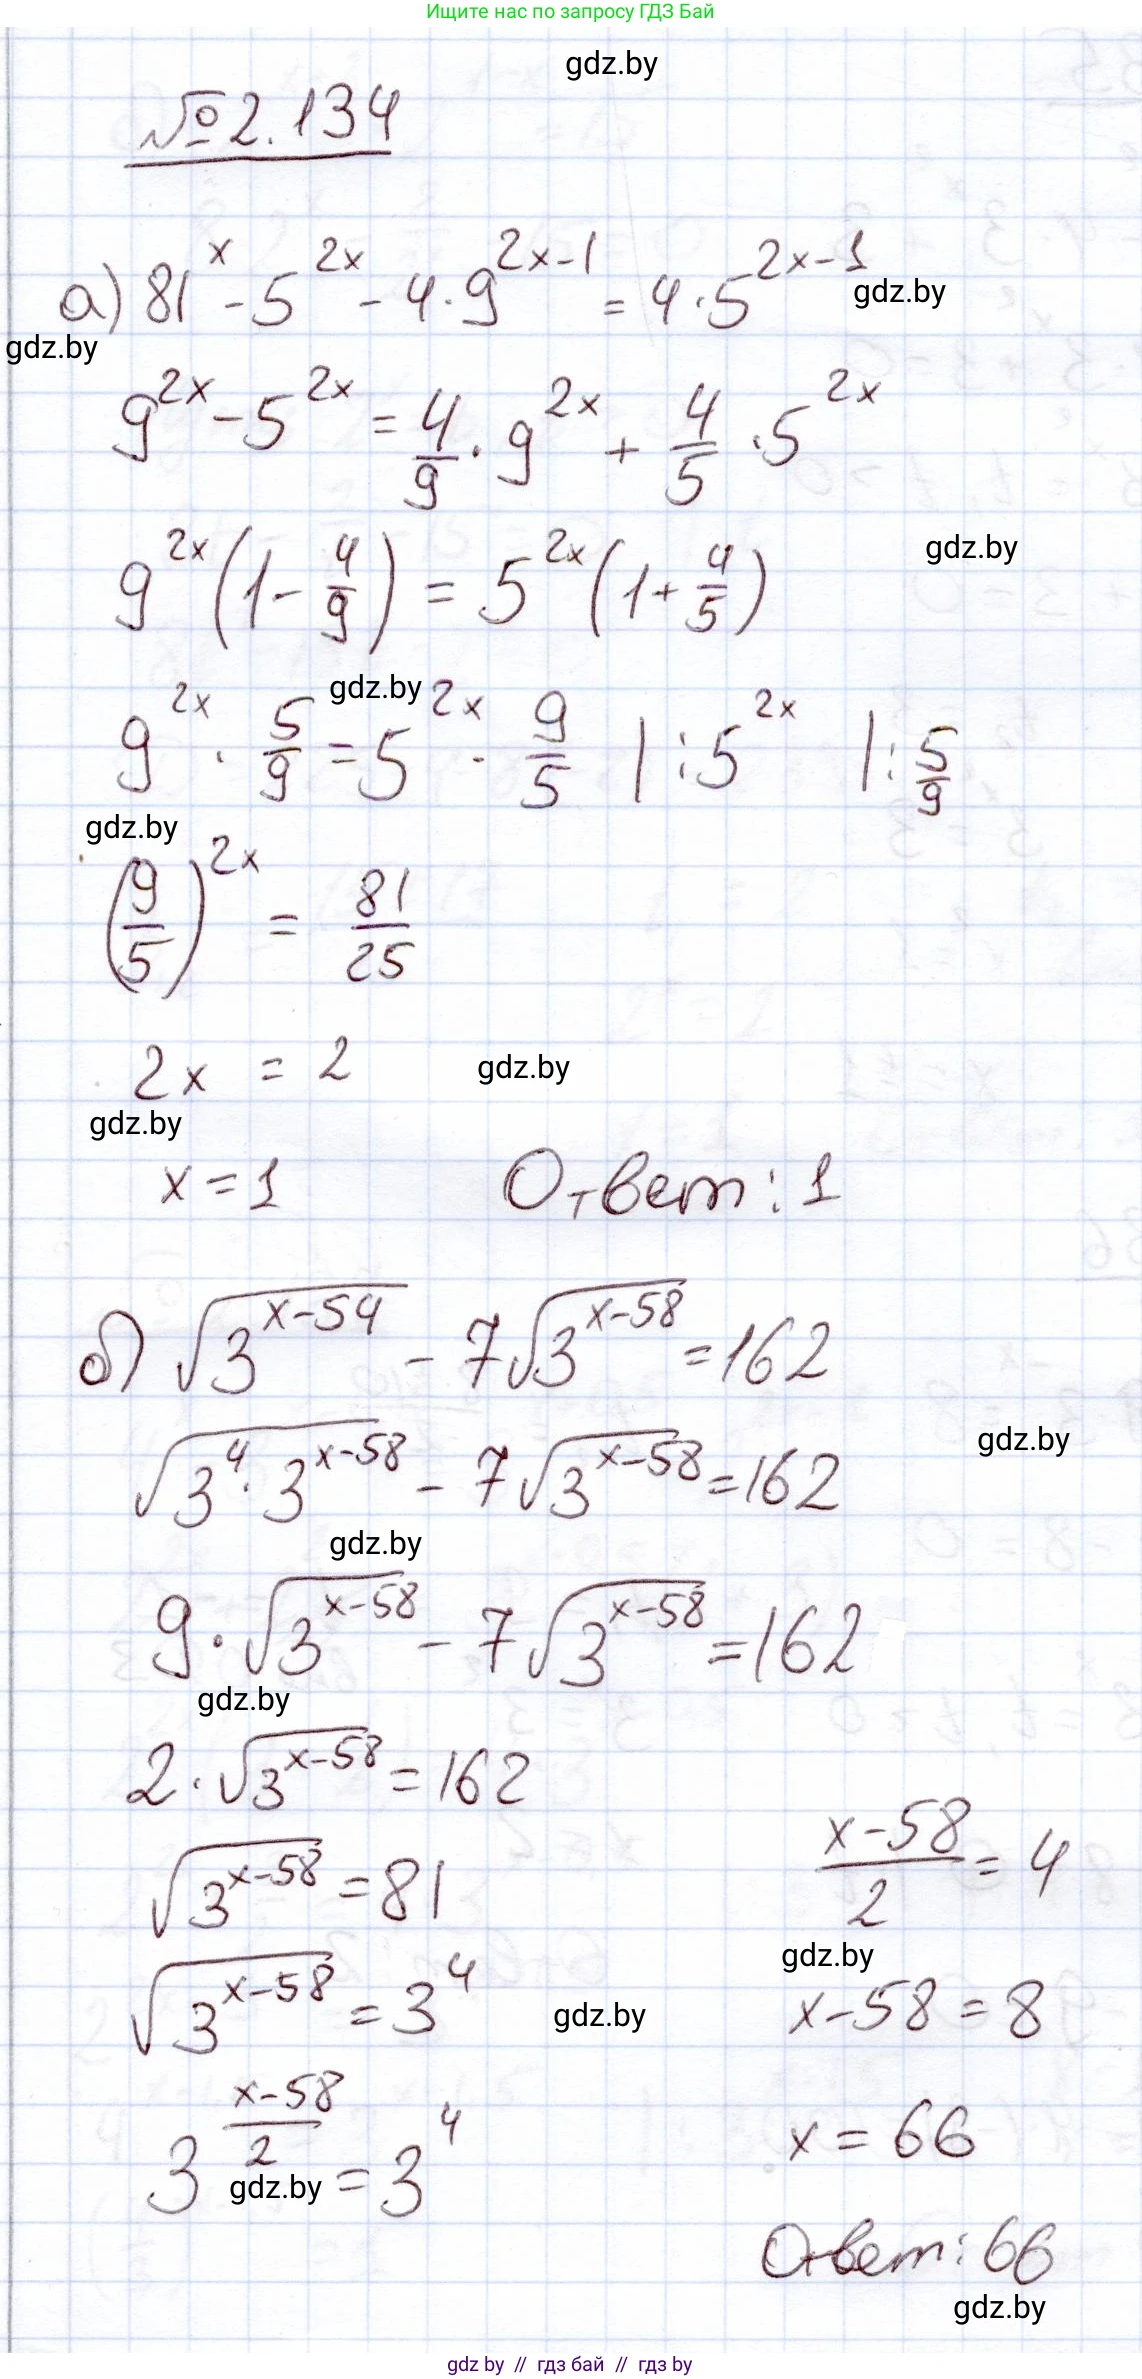 Ищите нас по запросу ГДЗ Бай
gdz.by
№2.134
а) 81^x - 5^{2x} - 4·9^{2x-1} = 4·5^{2x-1}
gdz.by
gdz.by
9^{2x} - 5^{2x} = 4/9 · 9^{2x} + 4/5 · 5^{2x}
gdz.by
9^{2x}(1 - 4/9) = 5^{2x}(1 + 4/5)
gdz.by
9^{2x} · 5/9 = 5^{2x} · 9/5 | : 5^{2x} | : 5/9
gdz.by
(9/5)^{2x} = 81/25
2x = 2
gdz.by
gdz.by
x = 1 Ответ: 1
б) √(3^{x-54}) - 7√(3^{x-58}) = 162
gdz.by
√(3^4 · 3^{x-58}) - 7√(3^{x-58}) = 162
gdz.by
9 · √(3^{x-58}) - 7√(3^{x-58}) = 162
gdz.by
2 · √(3^{x-58}) = 162
√(3^{x-58}) = 81
√(3^{x-58}) = 3^4
gdz.by
3^{(x-58)/2} = 3^4
gdz.by
(x-58)/2 = 4
gdz.by
x - 58 = 8
x = 66
Ответ: 66
gdz.by
gdz by // гдз бай // гдз by